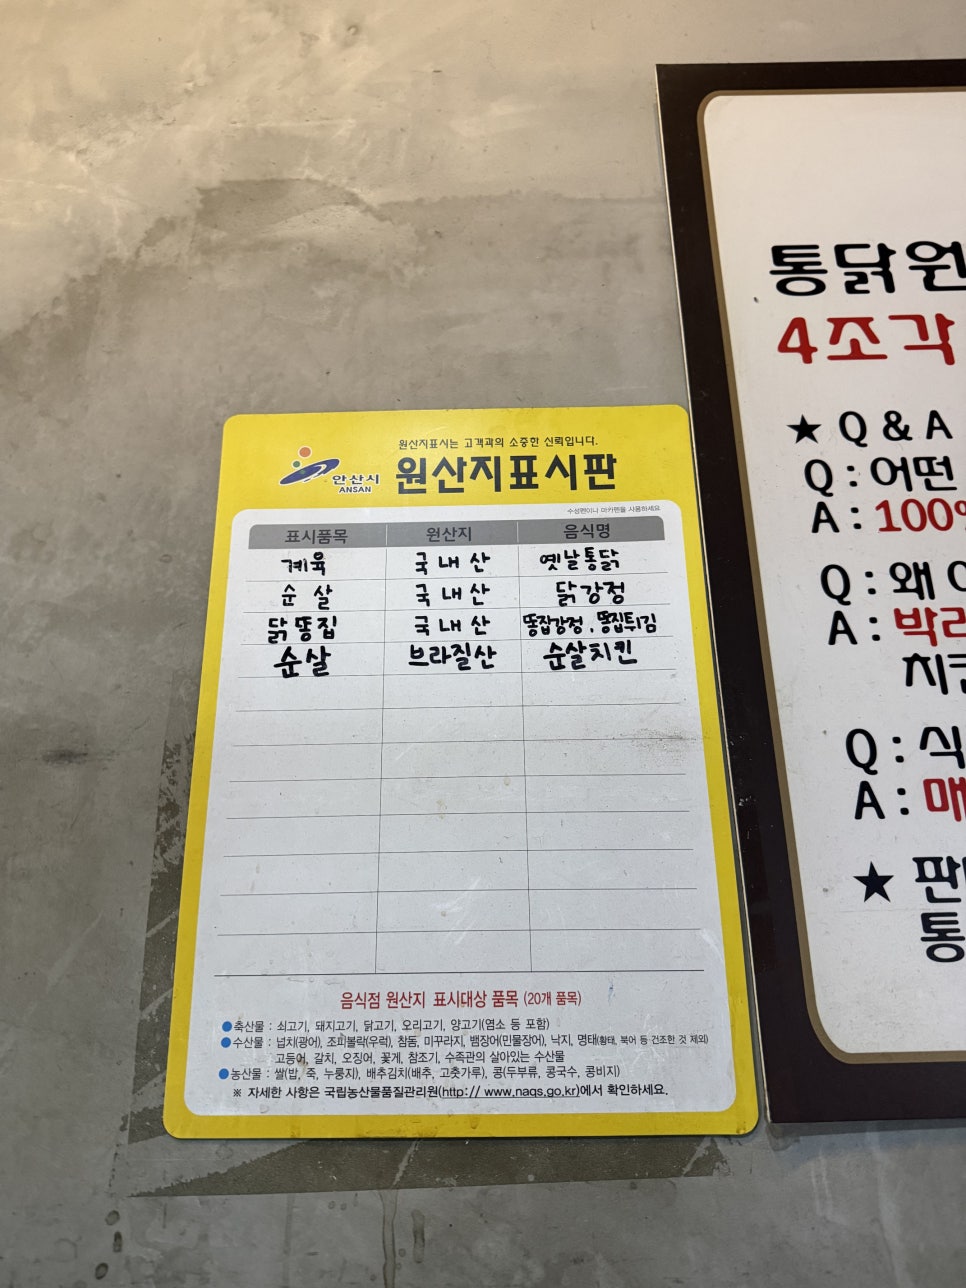 원산지표시는 고객과의 소중한 신뢰입니다.
안산시
ANSAN
원산지표시판
수성펜이나 마카펜을 사용하세요
표시품목 원산지 음식명
계육 국내산 옛날통닭
순살 국내산 닭강정
닭똥집 국내산 똥집강정, 똥집튀김
순살 브라질산 순살치킨
음식점 원산지 표시대상 품목 (20개 품목)
●축산물 : 쇠고기, 돼지고기, 닭고기, 오리고기, 양고기(염소 등 포함)
●수산물 : 넙치(광어), 조피볼락(우럭), 참돔, 미꾸라지, 뱀장어(민물장어), 낙지, 명태(황태, 북어 등 건조한 것 제외)
고등어, 갈치, 오징어, 꽃게, 참조기, 수족관의 살아있는 수산물
●농산물 : 쌀(밥, 죽, 누룽지), 배추김치(배추, 고춧가루), 콩(두부류, 콩국수, 콩비지)
※ 자세한 사항은 국립농산물품질관리원(http:// www.naqs.go.kr)에서 확인하세요.
통닭원
4조각
★ Q & A
Q : 어떤
A : 100%
Q : 왜
A : 박리
치킨
Q : 식
A : 매
★ 판
통